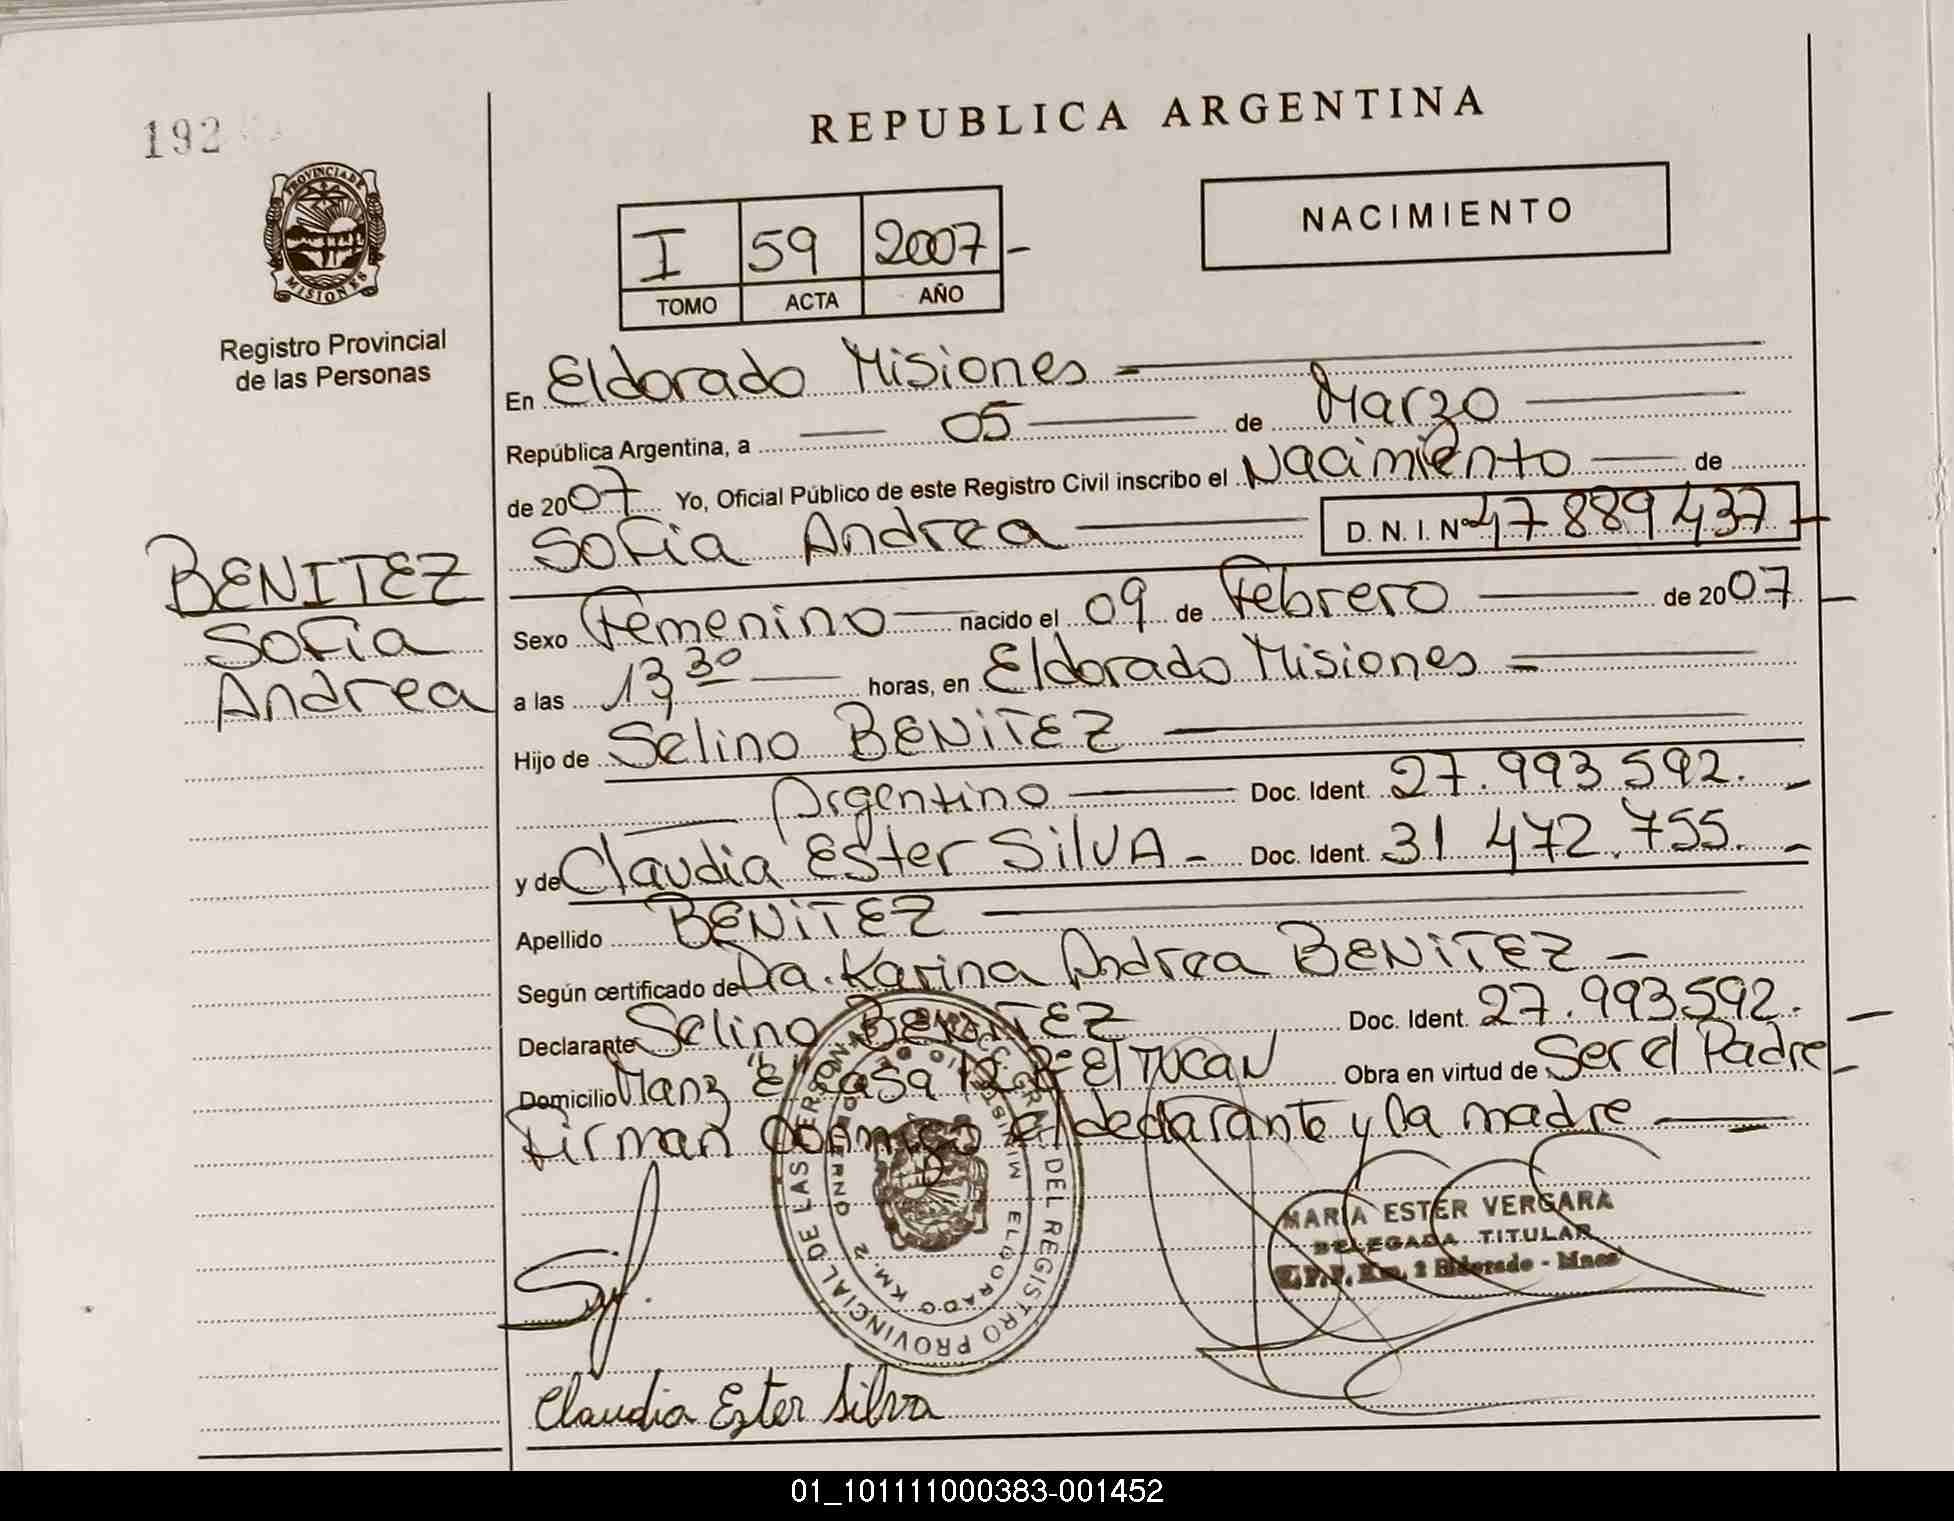 192
REPUBLICA ARGENTINA
PROVINCIA DE
MISIONES
Registro Provincial
de las Personas
I 59 2007
TOMO ACTA AÑO
NACIMIENTO
En Eldorado Misiones
República Argentina, a 05 de Marzo
de 2007 Yo, Oficial Público de este Registro Civil inscribo el Nacimiento de
Sofia Andrea D. N. I. Nº 47 889 437
BENITEZ
Sofia
Andrea
Sexo Femenino nacido el 09 de Febrero de 2007
a las 13,30 horas, en Eldorado Misiones
Hijo de Selino BENiTEZ
Argentino Doc. Ident. 27.993 592.
y de Claudia Ester SilVA Doc. Ident. 31 472.755.
Apellido BENiTEZ
Según certificado de Dra. Karina Andrea BENiTEZ
Declarante Selino BENITEZ Doc. Ident. 27.993592.
Domicilio Manz "E" Casa 12 Bº El TUCAN Obra en virtud de Ser el Padre
Firman conmigo el declarante y la madre
DEL REGISTRO PROVINCIAL DE LAS PERSONAS
ELDORADO KM. 2
MARIA ESTER VERGARA
DELEGADA TITULAR
Km. 2 Eldorado - Mnes
Claudia Ester Silva
01_101111000383-001452